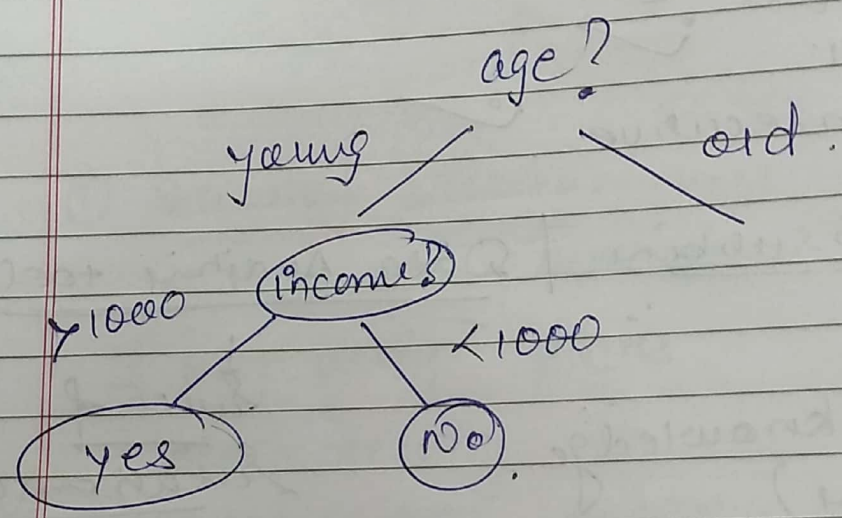 age?
young old.
income?
>1000 <1000
yes No.